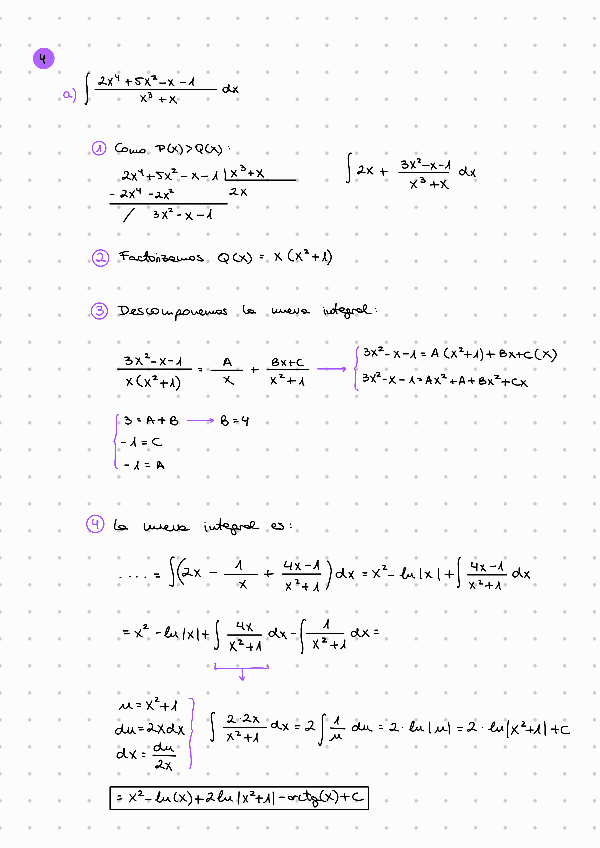 4
a) ∫ (2x⁴ + 5x² - x - 1)/(x³ + x) dx
① Como P(x) > Q(x):
2x⁴ + 5x² - x - 1 | x³ + x
- 2x⁴ - 2x² 2x
/ 3x² - x - 1
∫ 2x + (3x² - x - 1)/(x³ + x) dx
② Factorizamos Q(x) = x (x² + 1)
③ Descomponemos la nueva integral:
(3x² - x - 1)/(x(x² + 1)) = A/x + (Bx + C)/(x² + 1) → { 3x² - x - 1 = A(x² + 1) + Bx + C(x)
3x² - x - 1 = Ax² + A + Bx² + Cx
{ 3 = A + B → B = 4
-1 = C
-1 = A
④ La nueva integral es:
.... = ∫(2x - 1/x + (4x - 1)/(x² + 1)) dx = x² - ln|x| + ∫ (4x - 1)/(x² + 1) dx
= x² - ln|x| + ∫ 4x/(x² + 1) dx - ∫ 1/(x² + 1) dx =
u = x² + 1
du = 2x dx
dx = du/2x
∫ (2·2x)/(x² + 1) dx = 2 ∫ 1/u du = 2 · ln|u| = 2 · ln|x² + 1| + C
= x² - ln(x) + 2 ln|x² + 1| - arctg(x) + C